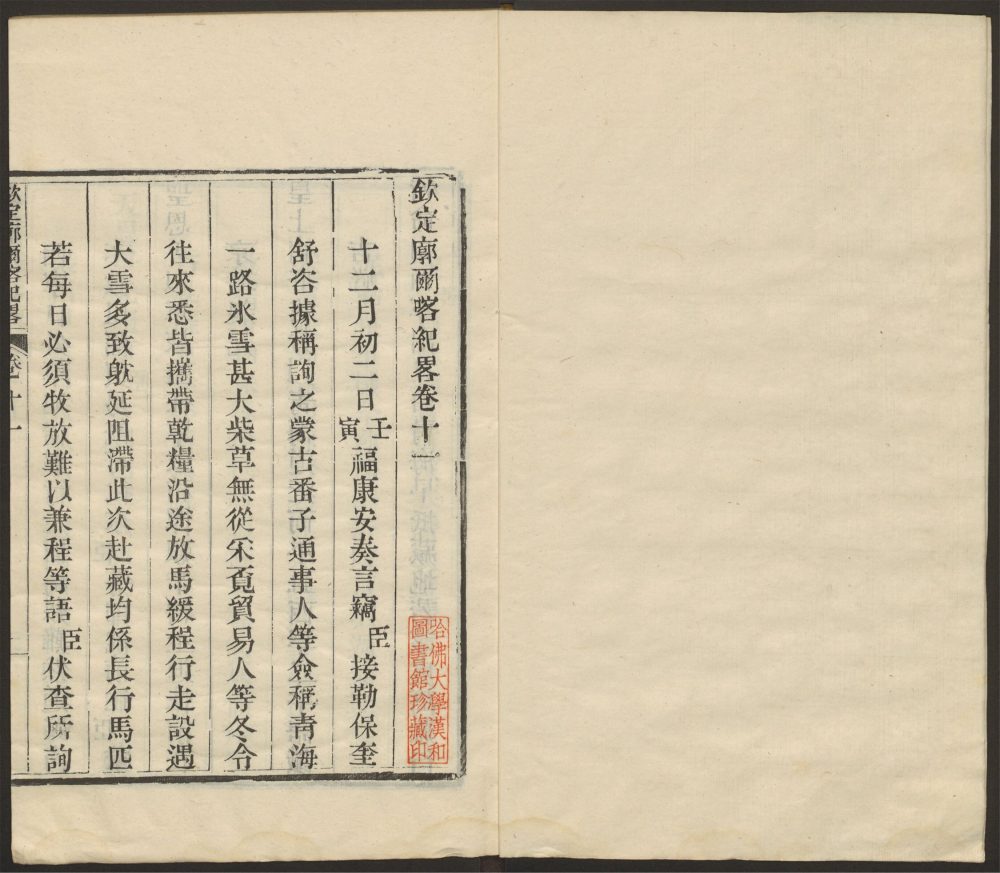 欽定廓爾喀紀畧卷十一
哈佛大學漢和
圖書館珍藏印
十二月初二日壬寅福康安奏言竊臣接勒保奎
舒咨據稱詢之蒙古番子通事人等僉稱青海
一路氷雪甚大柴草無從采覓貿易人等冬令
往來悉皆攜帶乾糧沿途放馬緩程行走設遇
大雪多致躭延阻滯此次赴藏均係長行馬匹
若每日必須牧放難以兼程等語臣伏查所詢
欽定廓爾喀紀畧 卷十一